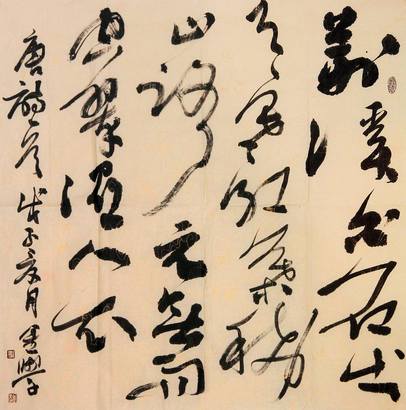 荆溪白石出
天寒紅葉稀
山路元無雨
空翠濕人衣
唐詩一首 戊子夏月